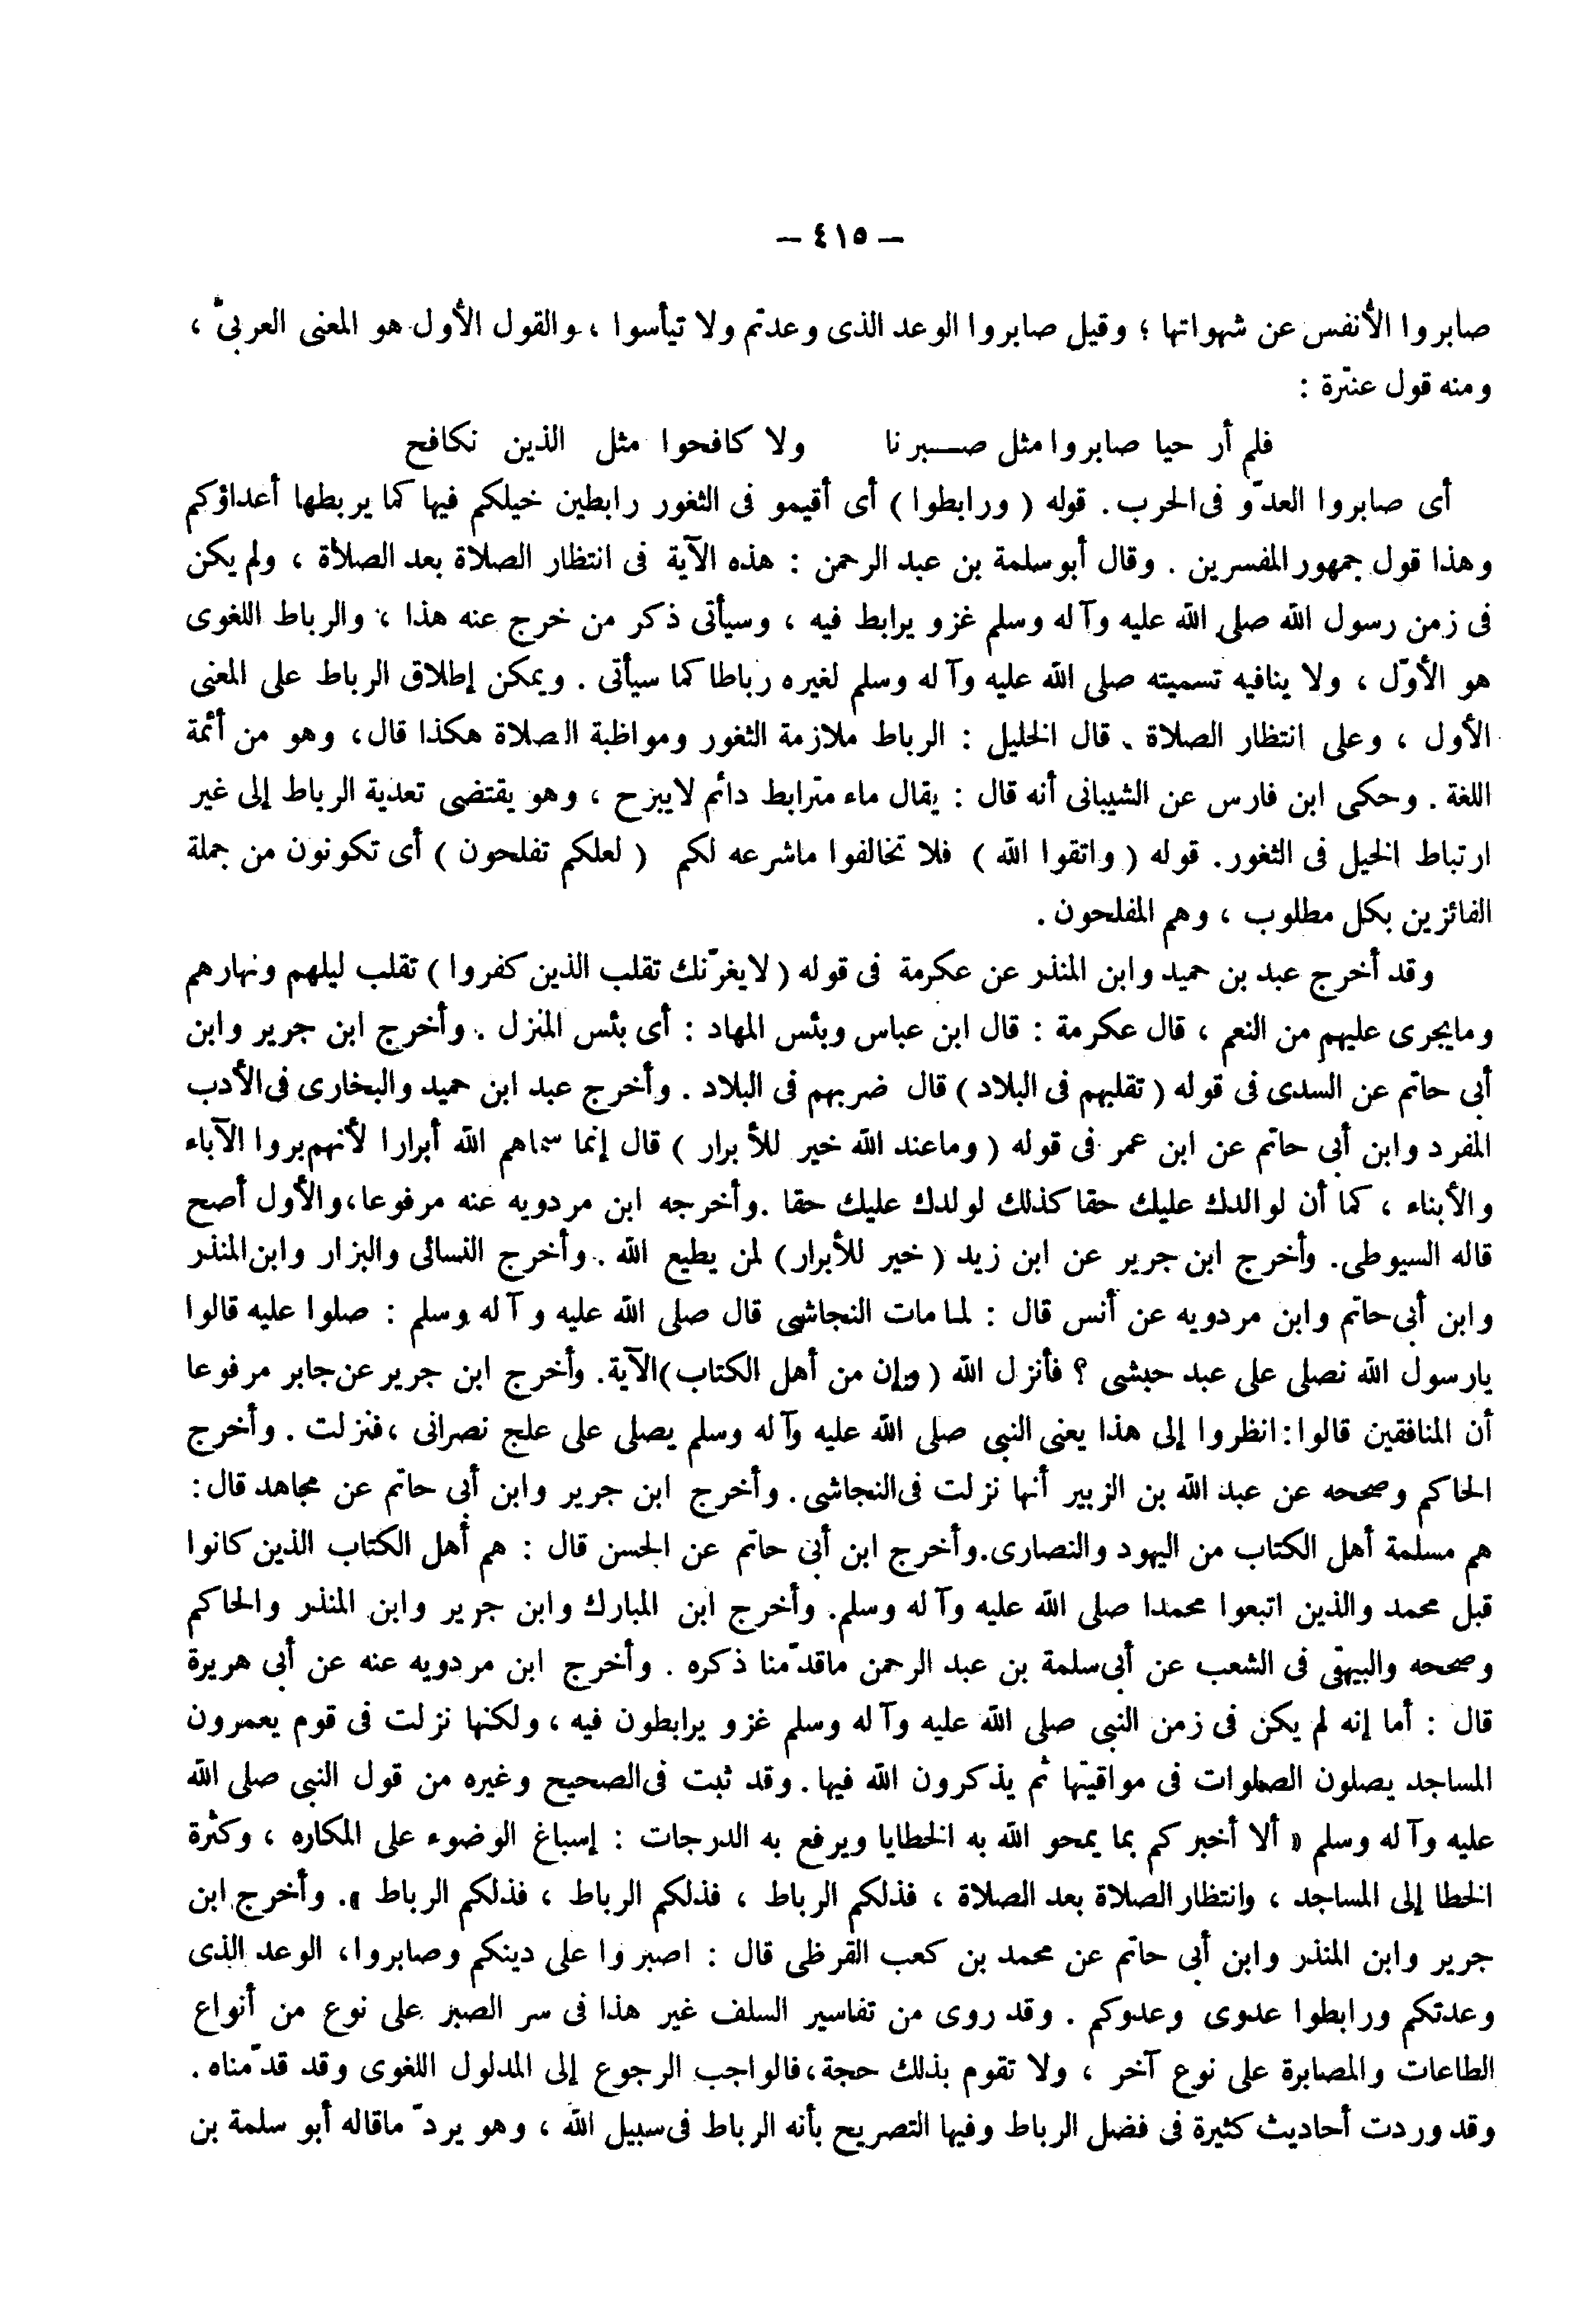 — ٤١٥ —
صابروا الأنفس عن شهواتها ؛ وقيل صابروا الوعد الذى وعدتم ولا تيأسوا ، والقول الأول هو المعنى العربىّ ،
ومنه قول عنترة :
فلم أر حيا صابروا مثل صـبرنا ولا كافحوا مثل الذين نكافح
أى صابروا العدوّ فى الحرب . قوله ( ورابطوا ) أى أقيمو فى الثغور رابطين خيلكم فيها كما يربطها أعداؤكم
وهذا قول جمهور المفسرين . وقال أبو سلمة بن عبد الرحمن : هذه الآية فى انتظار الصلاة بعد الصلاة ، ولم يكن
فى زمن رسول الله صلى الله عليه وآله وسلم غزو يرابط فيه ، وسيأتى ذكر من خرج عنه هذا ، والرباط اللغوى
هو الأوّل ، ولا ينافيه تسميته صلى الله عليه وآله وسلم لغيره رباطا كما سيأتى . ويمكن إطلاق الرباط على المعنى
الأول ، وعلى انتظار الصلاة . قال الخليل : الرباط ملازمة الثغور ومواظبة الصلاة هكذا قال ، وهو من أئمة
اللغة . وحكى ابن فارس عن الشيبانى أنه قال : يقال ماء مترابط دائم لايبرح ، وهو يقتضى تعدية الرباط إلى غير
ارتباط الخيل فى الثغور . قوله ( واتقوا الله ) فلا تخالفوا ماشرعه لكم ( لعلكم تفلحون ) أى تكونون من جملة
الفائزين بكل مطلوب ، وهم المفلحون .
وقد أخرج عبد بن حميد وابن المنذر عن عكرمة فى قوله ( لايغرّنك تقلب الذين كفروا ) تقلب ليلهم ونهارهم
ومايجرى عليهم من النعم ، قال عكرمة : قال ابن عباس وبئس المهاد : أى بئس المنزل . وأخرج ابن جرير وابن
أبى حاتم عن السدى فى قوله ( تقلبهم فى البلاد ) قال ضربهم فى البلاد . وأخرج عبد ابن حميد والبخارى فى الأدب
المفرد وابن أبى حاتم عن ابن عمر فى قوله ( وماعند الله خير للأبرار ) قال إنما سماهم الله أبرارا لأنهم بروا الآباء
والأبناء ، كما أن لوالدك عليك حقا كذلك لولدك عليك حقا . وأخرجه ابن مردويه عنه مرفوعا ، والأول أصح
قاله السيوطى . وأخرج ابن جرير عن ابن زيد ( خير للأبرار ) لمن يطيع الله . وأخرج النسائى والبزار وابن المنذر
وابن أبى حاتم وابن مردويه عن أنس قال : لما مات النجاشى قال صلى الله عليه وآله وسلم : صلوا عليه قالوا
يارسول الله نصلى على عبد حبشى ؟ فأنزل الله ( وإن من أهل الكتاب ) الآية . وأخرج ابن جرير عن جابر مرفوعا
أن المنافقين قالوا : انظروا إلى هذا يعنى النبى صلى الله عليه وآله وسلم يصلى على علج نصرانى ، فنزلت . وأخرج
الحاكم وصححه عن عبد الله بن الزبير أنها نزلت فى النجاشى . وأخرج ابن جرير وابن أبى حاتم عن مجاهد قال :
هم مسلمة أهل الكتاب من اليهود والنصارى . وأخرج ابن أبى حاتم عن الحسن قال : هم أهل الكتاب الذين كانوا
قبل محمد والذين اتبعوا محمدا صلى الله عليه وآله وسلم . وأخرج ابن المبارك وابن جرير وابن المنذر والحاكم
وصححه والبيهقى فى الشعب عن أبى سلمة بن عبد الرحمن ماقدّمنا ذكره . وأخرج ابن مردويه عنه عن أبى هريرة
قال : أما إنه لم يكن فى زمن النبى صلى الله عليه وآله وسلم غزو يرابطون فيه ، ولكنها نزلت فى قوم يعمرون
المساجد يصلون الصلوات فى مواقيتها ثم يذكرون الله فيها . وقد ثبت فى الصحيح وغيره من قول النبى صلى الله
عليه وآله وسلم « ألا أخبركم بما يمحو الله به الخطايا ويرفع به الدرجات : إسباغ الوضوء على المكاره ، وكثرة
الخطا إلى المساجد ، وانتظار الصلاة بعد الصلاة ، فذلكم الرباط ، فذلكم الرباط ، فذلكم الرباط » . وأخرج ابن
جرير وابن المنذر وابن أبى حاتم عن محمد بن كعب القرظى قال : اصبروا على دينكم وصابروا ، الوعد الذى
وعدتكم ورابطوا عدوى وعدوكم . وقد روى من تفاسير السلف غير هذا فى سر الصبر على نوع من أنواع
الطاعات والمصابرة على نوع آخر ، ولا تقوم بذلك حجة ، فالواجب الرجوع إلى المدلول اللغوى وقد قدّمناه .
وقد وردت أحاديث كثيرة فى فضل الرباط وفيها التصريح بأنه الرباط فى سبيل الله ، وهو يردّ ماقاله أبو سلمة بن